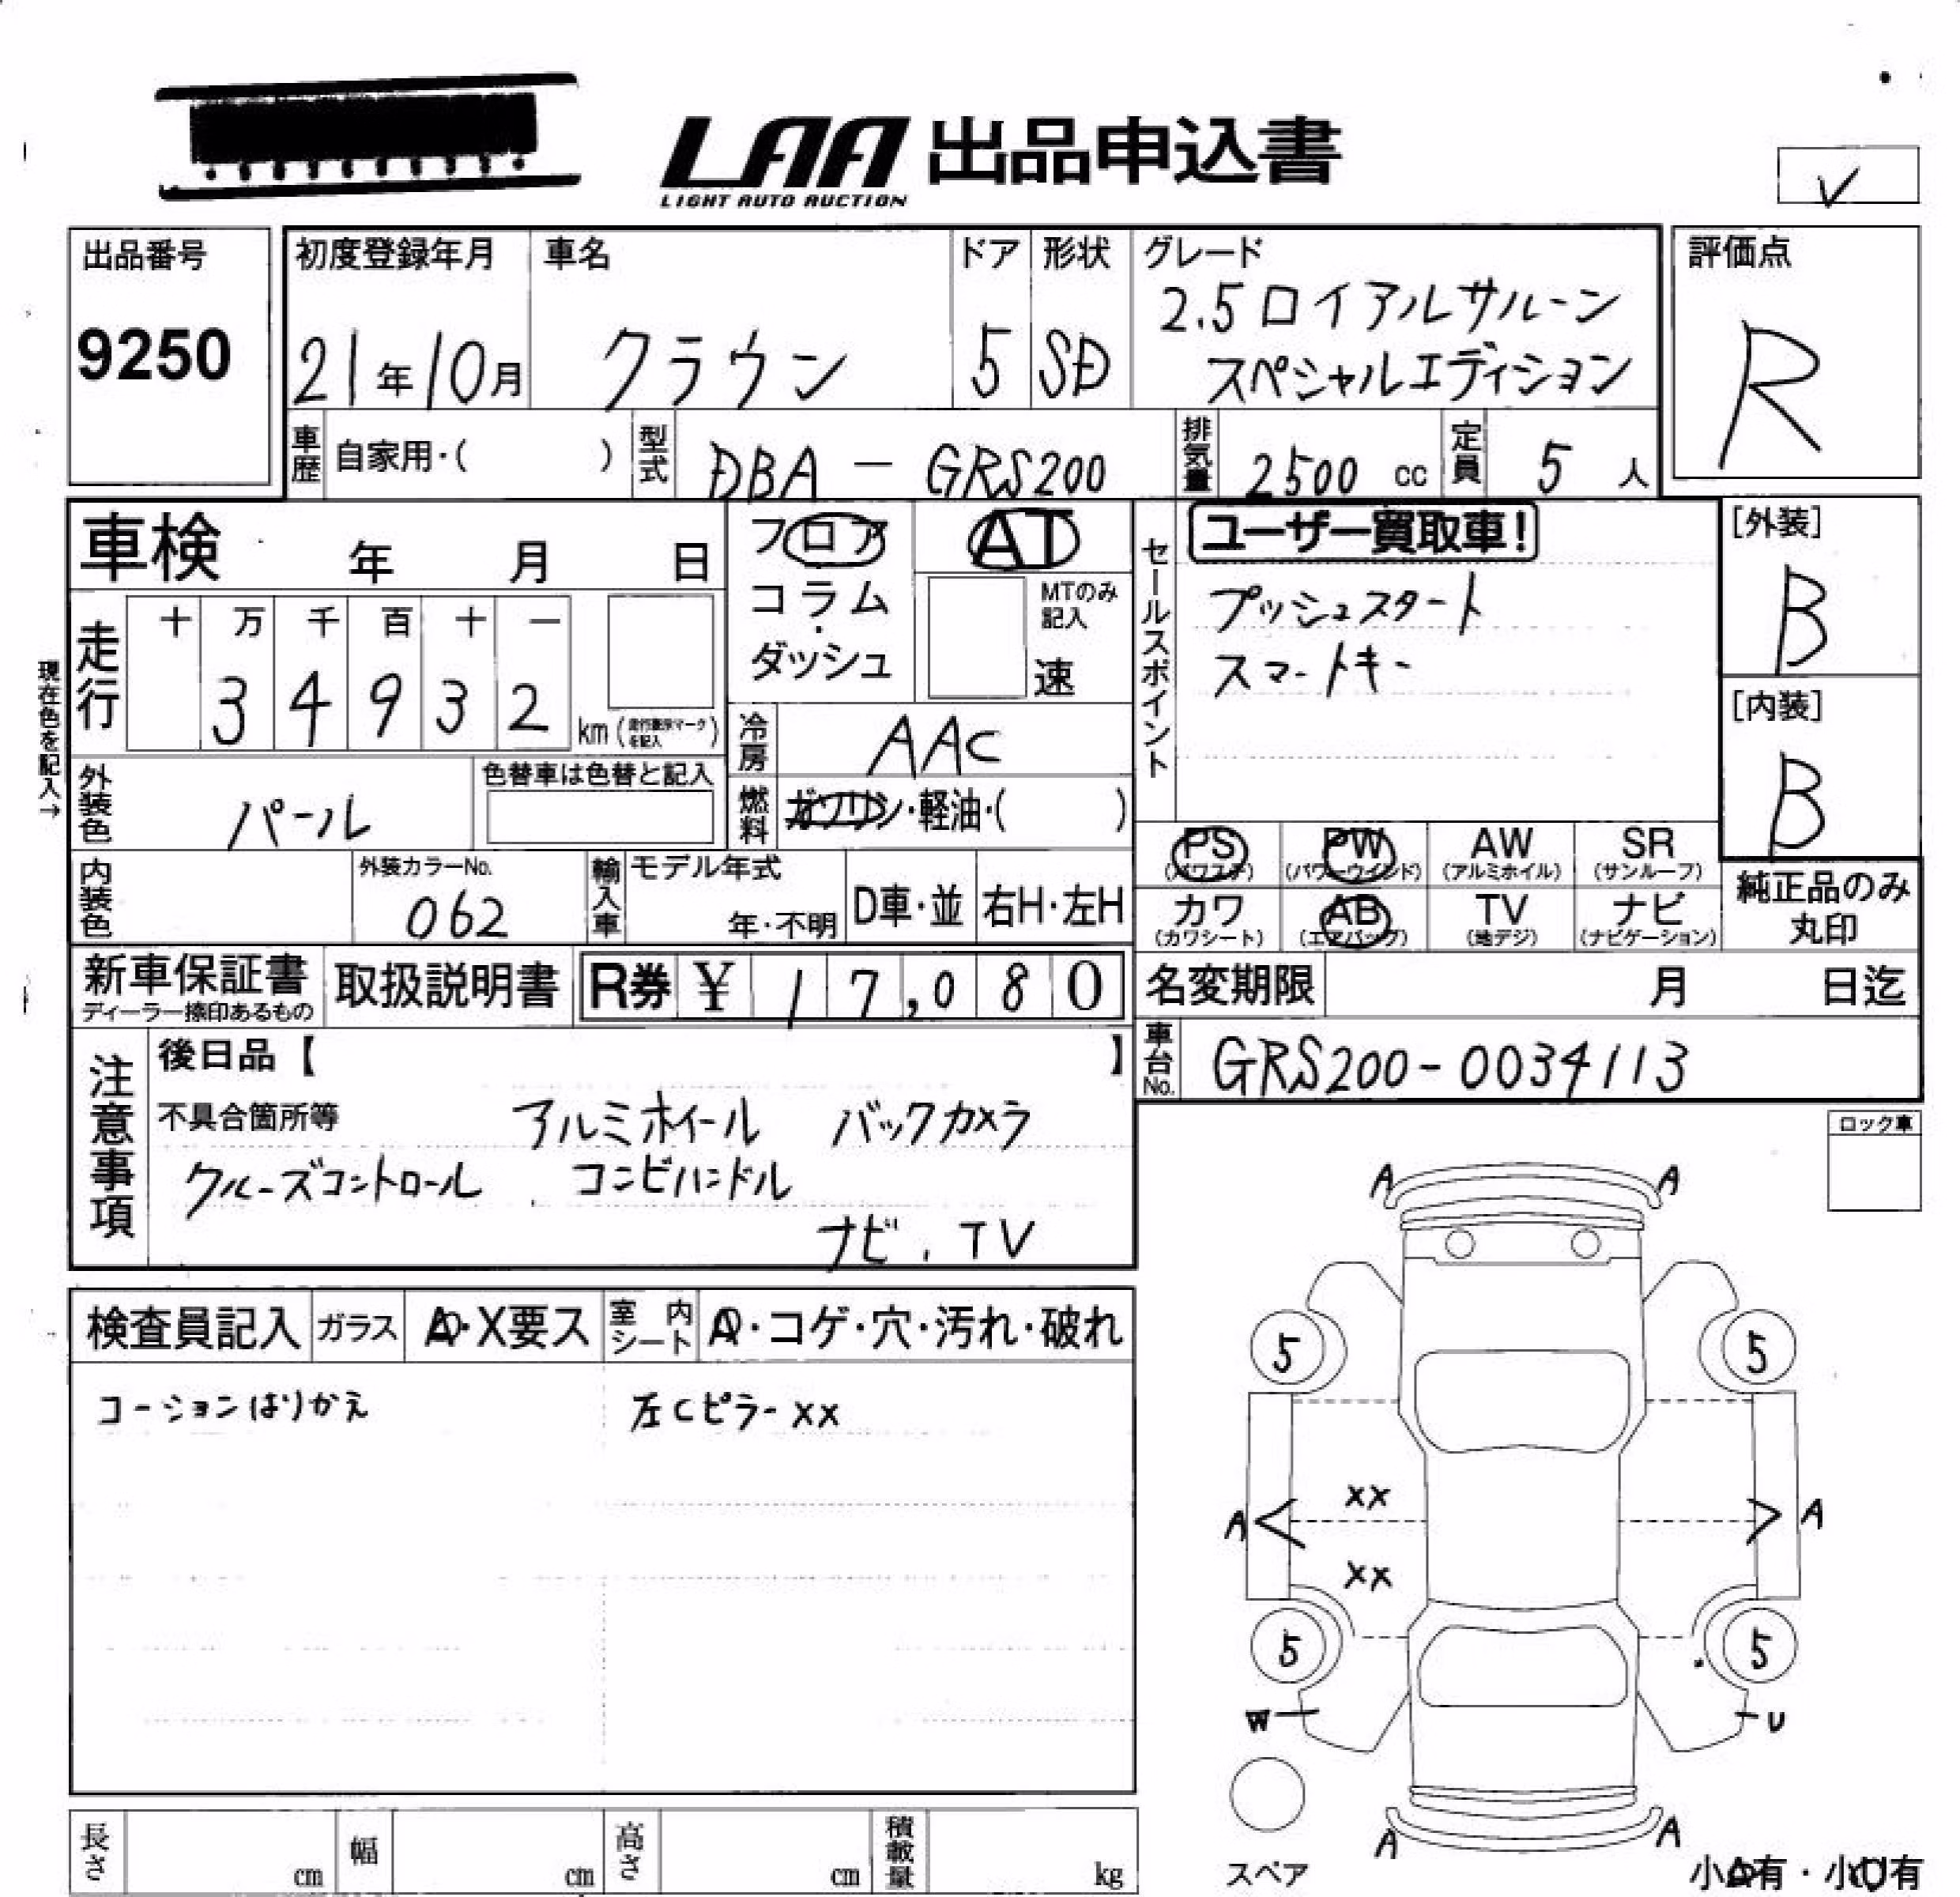 LAA 出品申込書
LIGHT AUTO AUCTION
✓
出品番号
9250
初度登録年月
21年10月
車名
クラウン
ドア
5
形状
SD
グレード
2.5ロイアルサルーン
スペシャルエディション
評価点
R
車歴 自家用・( )
型式 DBA - GRS200
排気量 2500 cc
定員 5 人
車検 年 月 日
フロア
コラム
・
ダッシュ
AT
MTのみ
記入
速
セールスポイント
ユーザー買取車!
プッシュスタート
スマートキー
[外装]
B
[内装]
B
現在色を記入→
走行
十 万 千 百 十 一
3 4 9 3 2
km (走行メーターマークを記入)
冷房 AAC
外装色 パール
色替車は色替と記入
燃料 ガソリン・軽油・( )
PS (パワステ)
PW (パワーウインド)
AW (アルミホイル)
SR (サンルーフ)
カワ (カワシート)
AB (エアバック)
TV (地デジ)
ナビ (ナビゲーション)
純正品のみ
丸印
内装色
外装カラーNo.
062
輸入車
モデル年式
年・不明
D車・並
右H・左H
新車保証書
ディーラー捺印あるもの
取扱説明書
R券 ¥ 17,080
名変期限 月 日迄
車台No. GRS200-0034113
注意事項
後日品【 】
不具合箇所等 アルミホイール バックカメラ
クルーズコントロール コンビハンドル
ナビ、TV
ロック車
検査員記入
ガラス A・X要ス
室内シート A・コゲ・穴・汚れ・破れ
コーションはりかえ
左Cピラー XX
A A
5 5
XX
A A
XX
5 5
W U
A A
スペア
小A有・小U有
長さ cm
幅 cm
高さ cm
積載量 kg